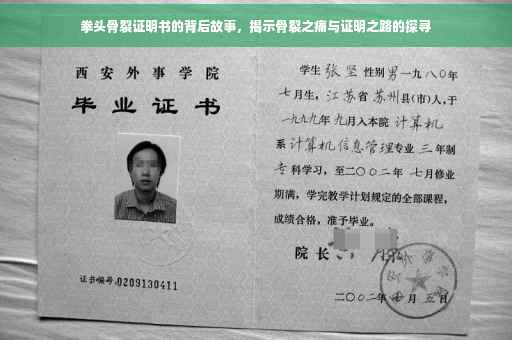 拳头骨裂证明书的背后故事，揭示骨裂之痛与证明之路的探寻
西安外事学院
毕业证书
证书编号:0209130411
学生 张坚 性别 男 一九八〇年
七月生，江苏省 苏州县(市)人，于
一九九九年 九月入本院 计算机
系 计算机信息管理专业 三年制
专科学习，至二〇〇二年 七月修业
期满，学完教学计划规定的全部课程，
成绩合格，准予毕业。
院长
二〇〇二年 七月 五日